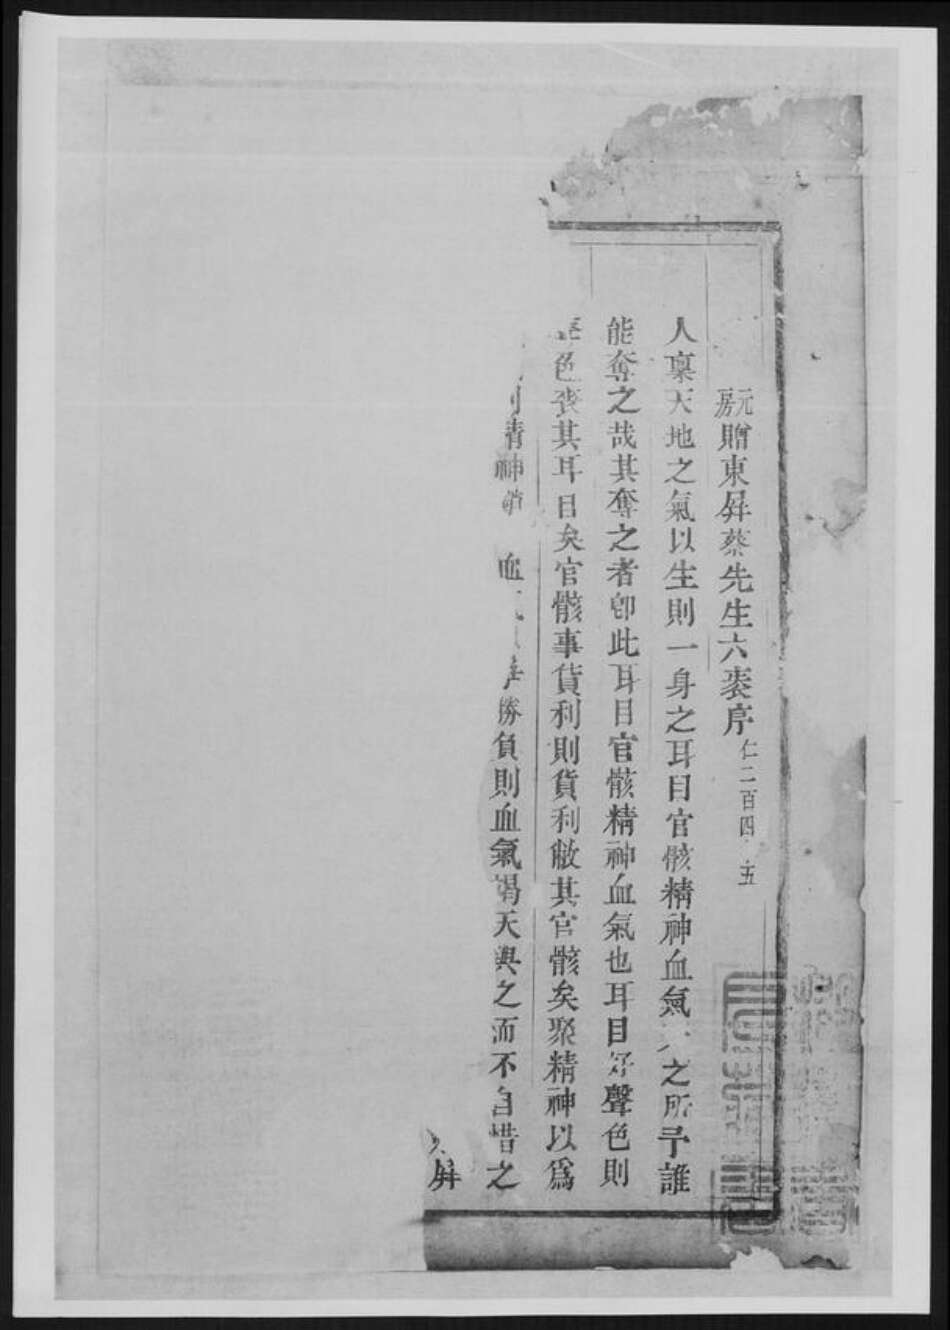 元房贈東屏蔡先生六袠序仁二百四五
人稟天地之氣以生則一身之耳目官骸精神血氣天之所予誰
能奪之哉其奪之者卽此耳目官骸精神血氣也耳目好聲色則
聲色喪其耳目矣官骸事貨利則貨利敝其官骸矣聚精神以爲
則精神 血 勝負則血氣竭天與之而不自惜之
屏